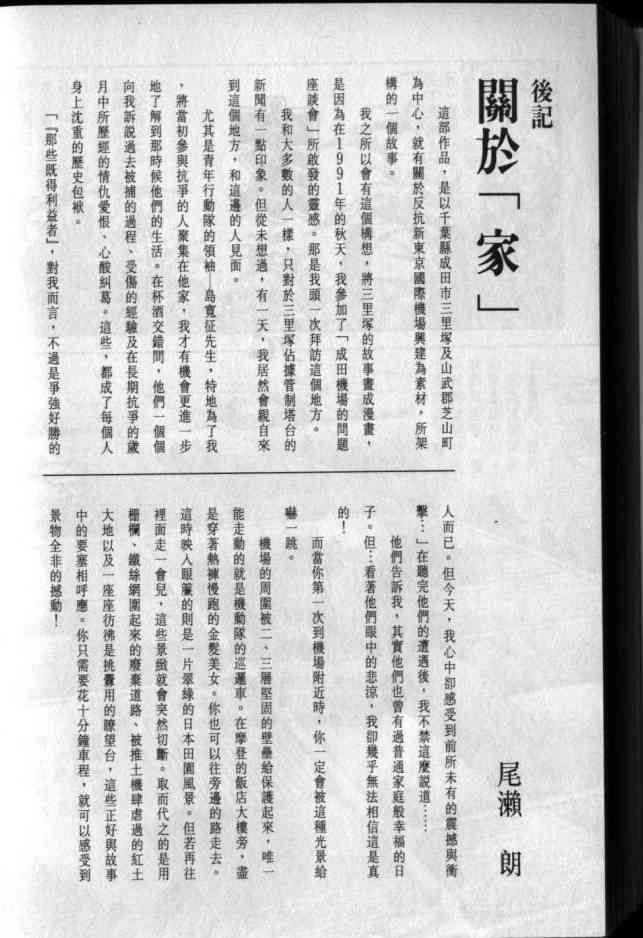 後記
關於「家」
尾瀨　朗
這部作品，是以千葉縣成田市三里塚及山武郡芝山町
為中心，就有關於反抗新東京國際機場興建為素材，所架
構的一個故事。
我之所以會有這個構想，將三里塚的故事畫成漫畫，
是因為在1991年的秋天，我參加了「成田機場的問題
座談會」所啟發的靈感。那是我頭一次拜訪這個地方。
我和大多數的人一樣，只對於三里塚佔據管制塔台的
新聞有一點印象。但從未想過，有一天，我居然會親自來
到這個地方，和這邊的人見面。
尤其是青年行動隊的領袖—島寬征先生，特地為了我
，將當初參與抗爭的人聚集在他家，我才有機會更進一步
地了解到那時候他們的生活。在杯酒交錯間，他們一個個
向我訴說過去被捕的過程、受傷的經驗及在長期抗爭的歲
月中所歷經的情仇愛恨、心酸糾葛。這些，都成了每個人
身上沈重的歷史包袱。
「『那些既得利益者』，對我而言，不過是爭強好勝的
人而已。但今天，我心中卻感受到前所未有的震撼與衝
擊…」在聽完他們的遭遇後，我不禁這麼說道……
他們告訴我，其實他們也曾有過普通家庭般幸福的日
子。但…看著他們眼中的悲涼，我卻幾乎無法相信這是真
的！
而當你第一次到機場附近時，你一定會被這種光景給
嚇一跳。
機場的周圍被二、三層堅固的壁壘給保護起來，唯一
能走動的就是機動隊的巡邏車。在摩登的飯店大樓旁，盡
是穿著熱褲慢跑的金髮美女。你也可以往旁邊的路走去。
這時映人眼簾的則是一片翠綠的日本田園風景。但若再往
裡面走一會兒，這些景緻就會突然切斷。取而代之的是用
柵欄、鐵絲網圍起來的廢棄道路、被推土機肆虐過的紅土
大地以及一座座彷彿是挑釁用的瞭望台，這些正好與故事
中的要塞相呼應。你只需要花十分鐘車程，就可以感受到
景物全非的撼動！